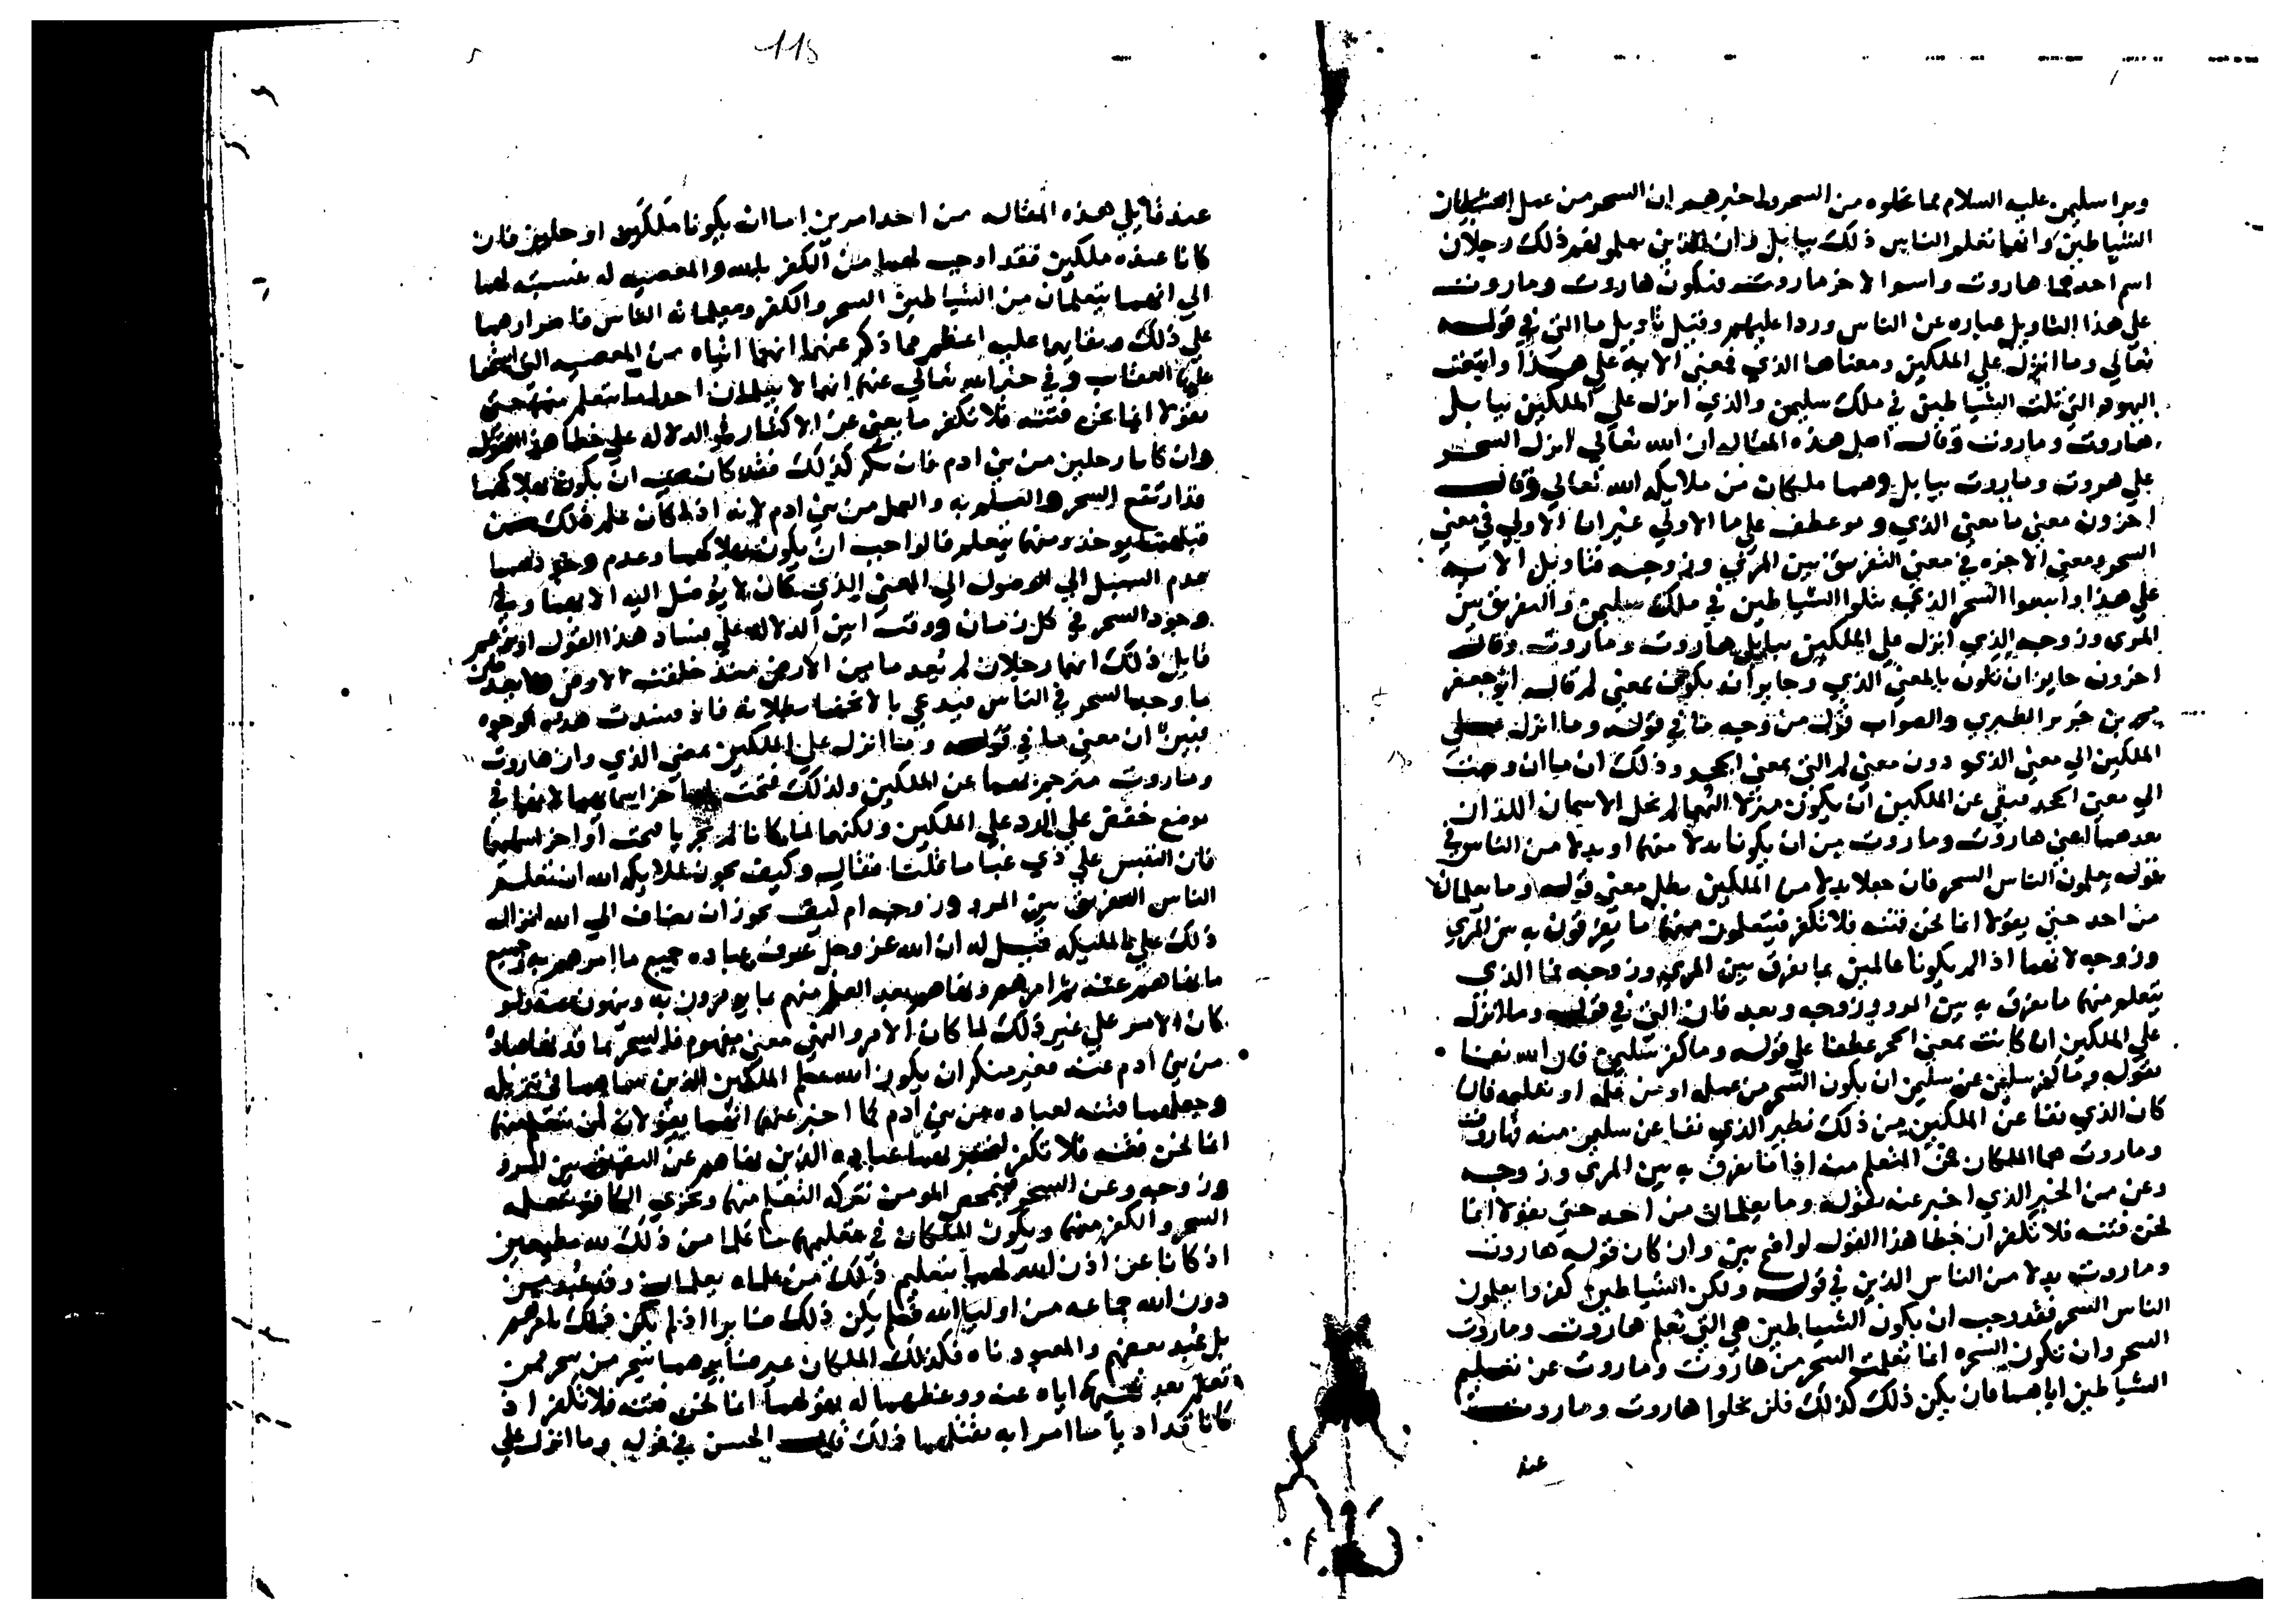 وبرا سليمن عليه السلام مما نحلوه من السحر واخبرهم ان السحر من عمل الشيطان
الشياطين وانها تعلم الناس ذلك ببابل وان الذين يعلمونهم ذلك رجلان
اسم احدهما هاروت واسم الاخر ماروت فيكون هاروت وماروت
علي هذا التاويل عباره عن الناس وردا عليهم وقيل تاويل ما التي في قوله
تعالي وما انزل علي الملكين ومعناها الذي فمعني الايه علي هذا واتبعت
اليهود التي تلت الشياطين في ملك سليمن والذي انزل علي الملكين ببابل
هاروت وماروت وقال اهل هذه المقاله ان الله تعالي انزل السحر
علي هروت وماروت ببابل وهما ملكان من ملايكه الله تعالي وقال
اخرون معني ما معني الذي وهو عطف علي ما الاولي غير ان الاولي في معني
السحر ومعني الاخره في معني التفريق بين المرئ وزوجه فتاويل الايه
علي هذا واتبعوا السحر الذي تتلوا الشياطين في ملك سليمن والتفريق بين
المرئ وزوجه الذي انزل علي الملكين ببابل هاروت وماروت وقال
اخرون جايز ان تكون ما بمعني الذي وجايز ان تكون بمعني لم قال ابو جعفر
محمد بن جرير الطبري والصواب قول من وجه ما في قوله وما انزل علي
الملكين الي معني الذي دون معني لم التي بمعني الجحد وذلك ان ما ان وجهت
الي معني الجحد فنفي عن الملكين ان يكون منزلا اليهما لم تخل الاسمان اللذان
بعدهما اعني هاروت وماروت من ان يكونا بدلا منهما او بدلا من الناس في
قوله يعلمون الناس السحر فان جعلا بدلا من الملكين بطل معني قوله وما يعلمان
من احد حتي يقولا انما نحن فتنه فلا تكفر فيتعلمون منهما ما يفرقون به بين المرئ
وزوجه لانهما اذا لم يكونا عالمين بما يفرق بين المرئ وزوجه فما الذي
يتعلم منهما ما يفرق به بين المرو وزوجه وبعد فان التي في قوله وما انزل
علي الملكين ان كانت بمعني الجحد عطفا علي قوله وما كفر سليمن فان الله نفا
بقوله وما كفر سليمن عن سليمن ان يكون السحر من عمله او من علمه او تعليمه فان
كان الذي نفا عن الملكين من ذلك نظير الذي نفا عن سليمن منه فهاروت
وماروت هما الملكان فمن المتعلم منه اذا ما يفرق به بين المرئ وزوجه
وعن من الخبر الذي اخبر عنه بقوله وما يعلمان من احد حتي يقولا انما
نحن فتنه فلا تكفر ان خطا هذا القول لواضح بين وان كان قوله هاروت
وماروت بدلا من الناس الذين في قوله ولكن الشياطين كفروا يعلمون
الناس السحر فقد وجب ان يكون الشياطين هي التي تعلم هاروت وماروت
السحر وان تكون السحره انما تعلمت السحر من هاروت وماروت عن تعليم
الشياطين اياهما فان يكن ذلك كذلك فلن يخلوا هاروت وماروت
عند
118
عند قايلي هذه المقاله من احد امرين اما ان يكونا ملكين او رجلين فان
كانا عنده ملكين فقد اوجب لهما من الكفر بالله والمعصيه له بنسبته لهما
الي انهما يتعلمان من الشياطين السحر والكفر ويعلمانه الناس فاصرارهما
علي ذلك ومقامهما عليه اعظم مما ذكر عنهما انهما اتياه من المعصيه التي استحقا
عليها العقاب وفي خبر الله تعالي عنهما انهما لا يعلمان احدا ما يتعلم منهما حتي
يقولا انما نحن فتنه فلا تكفر ما يغني عن الاكثار في الدلاله علي خطا هذا القول
وان كانا رجلين من بني ادم فان يكن كذلك فقد كان يجب ان يكون بهلاكهما
قد ارتفع السحر والعلم به والعمل من بني ادم لانه اذا كان علم ذلك من
قبلهما يوخذ ومنهما يتعلم فالواجب ان يكون بهلاكهما وعدم وجودهما
عدم السبيل الي الوصول الي المعني الذي كان لا يوصل اليه الا بهما وفي
وجود السحر في كل زمان ووقت ابين الدلاله علي فساد هذا القول او يزعم
قايل ذلك انهما رجلان لم يعدما من الارض منذ خلقت الارض
ما وجد السحر في الناس فيدعي ما لا تخفا بطلانه فاذ فسدت هذه الوجوه
فبين ان معني ما في قوله وما انزل علي الملكين بمعني الذي وان هاروت
وماروت مترجم بهما عن الملكين ولذلك فتحت اواخر اسمايهما لانهما في
موضع خفض علي الرد علي الملكين ولكنهما لما كانا لا يجر يا فتحت اواخر اسمايهما
فان التبس علي ذي غبا ما قلنا فقال وكيف يجوز لملايكه الله ان تعلم
الناس التفريق بين المرو وزوجه ام كيف يجوز ان يضاف الي الله انزاله
ذلك علي الملايكه قيل له ان الله عز وجل عرف عباده جميع ما امرهم به وجميع
ما نهاهم عنه ثم امرهم ونهاهم بعد العلم منهم بما يومرون به وينهون عنه ولو
كان الامر علي غير ذلك لما كان الامر والنهي معني مفهوم فالسحر مما قد نها عباده
من بني ادم عنه فغير منكر ان يكون الله علم الملكين الذين سماهما في تنزيله
وجعلهما فتنه لعباده من بني ادم كما اخبر عنهما انهما يقولان لمن يتعلم منهما
انما نحن فتنه فلا تكفر ليختبر بهما عباده الذين نهاهم عن التفريق بين المرو
وزوجه وعن السحر فيمحص المومن بتركه التعلم منهما ويخزي الكافر بتعلمه
السحر والكفر منهما ويكون الملكان في تعليمهما من علما من ذلك لله مطيعين
اذ كانا عن اذن الله لهما بتعليم ذلك من علماه يعلمان وقد عبد من
دون الله جماعه من اوليا الله فلم يكن ذلك ضايرا اذ لم يكن ذلك بامرهم
بل عبد بعضهم والمعبود ناه فكذلك الملكان غير ضايرهما سحر من سحر ممن
تعلم بعد نهيهما اياه عنه ووعظهما له بقولهما انما نحن فتنه فلا تكفر اذ
كانا قد اديا ما امرا به بقيلهما ذلك قال الحسن في قوله وما انزل علي